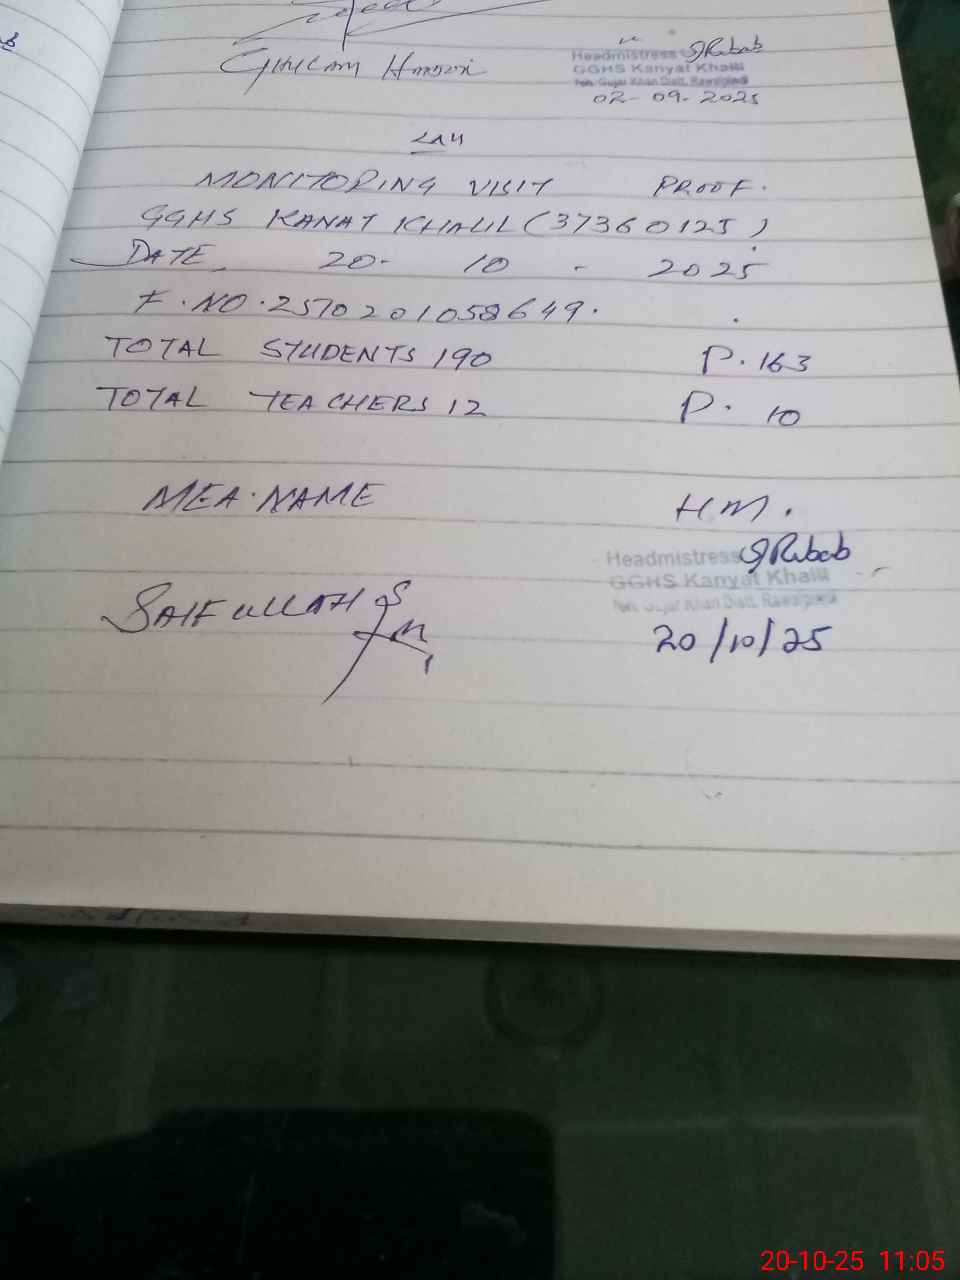 GHULAM Hussain
Headmistress SRubab
GGHS Kanyat Khalil
Teh. Gujar Khan Distt. Rawalpindi
02-09-2025
MONITORING VISIT PROOF.
GGHS KANAT KHALIL (37360125)
DATE. 20- 10 - 2025
F.NO.2570201058649.
TOTAL STUDENTS 190 P. 163
TOTAL TEACHERS 12 P. 10
MEA.NAME HM.
Headmistress SRubab
GGHS Kanyat Khalil
Teh. Gujar Khan Distt. Rawalpindi
SAIFULLAH
20/10/25
20-10-25 11:05